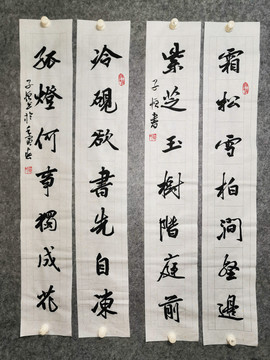 霜松雪柏澗壑邊
紫芝玉樹階庭前
冷硯欲書先自凍
孤燈何事獨成花